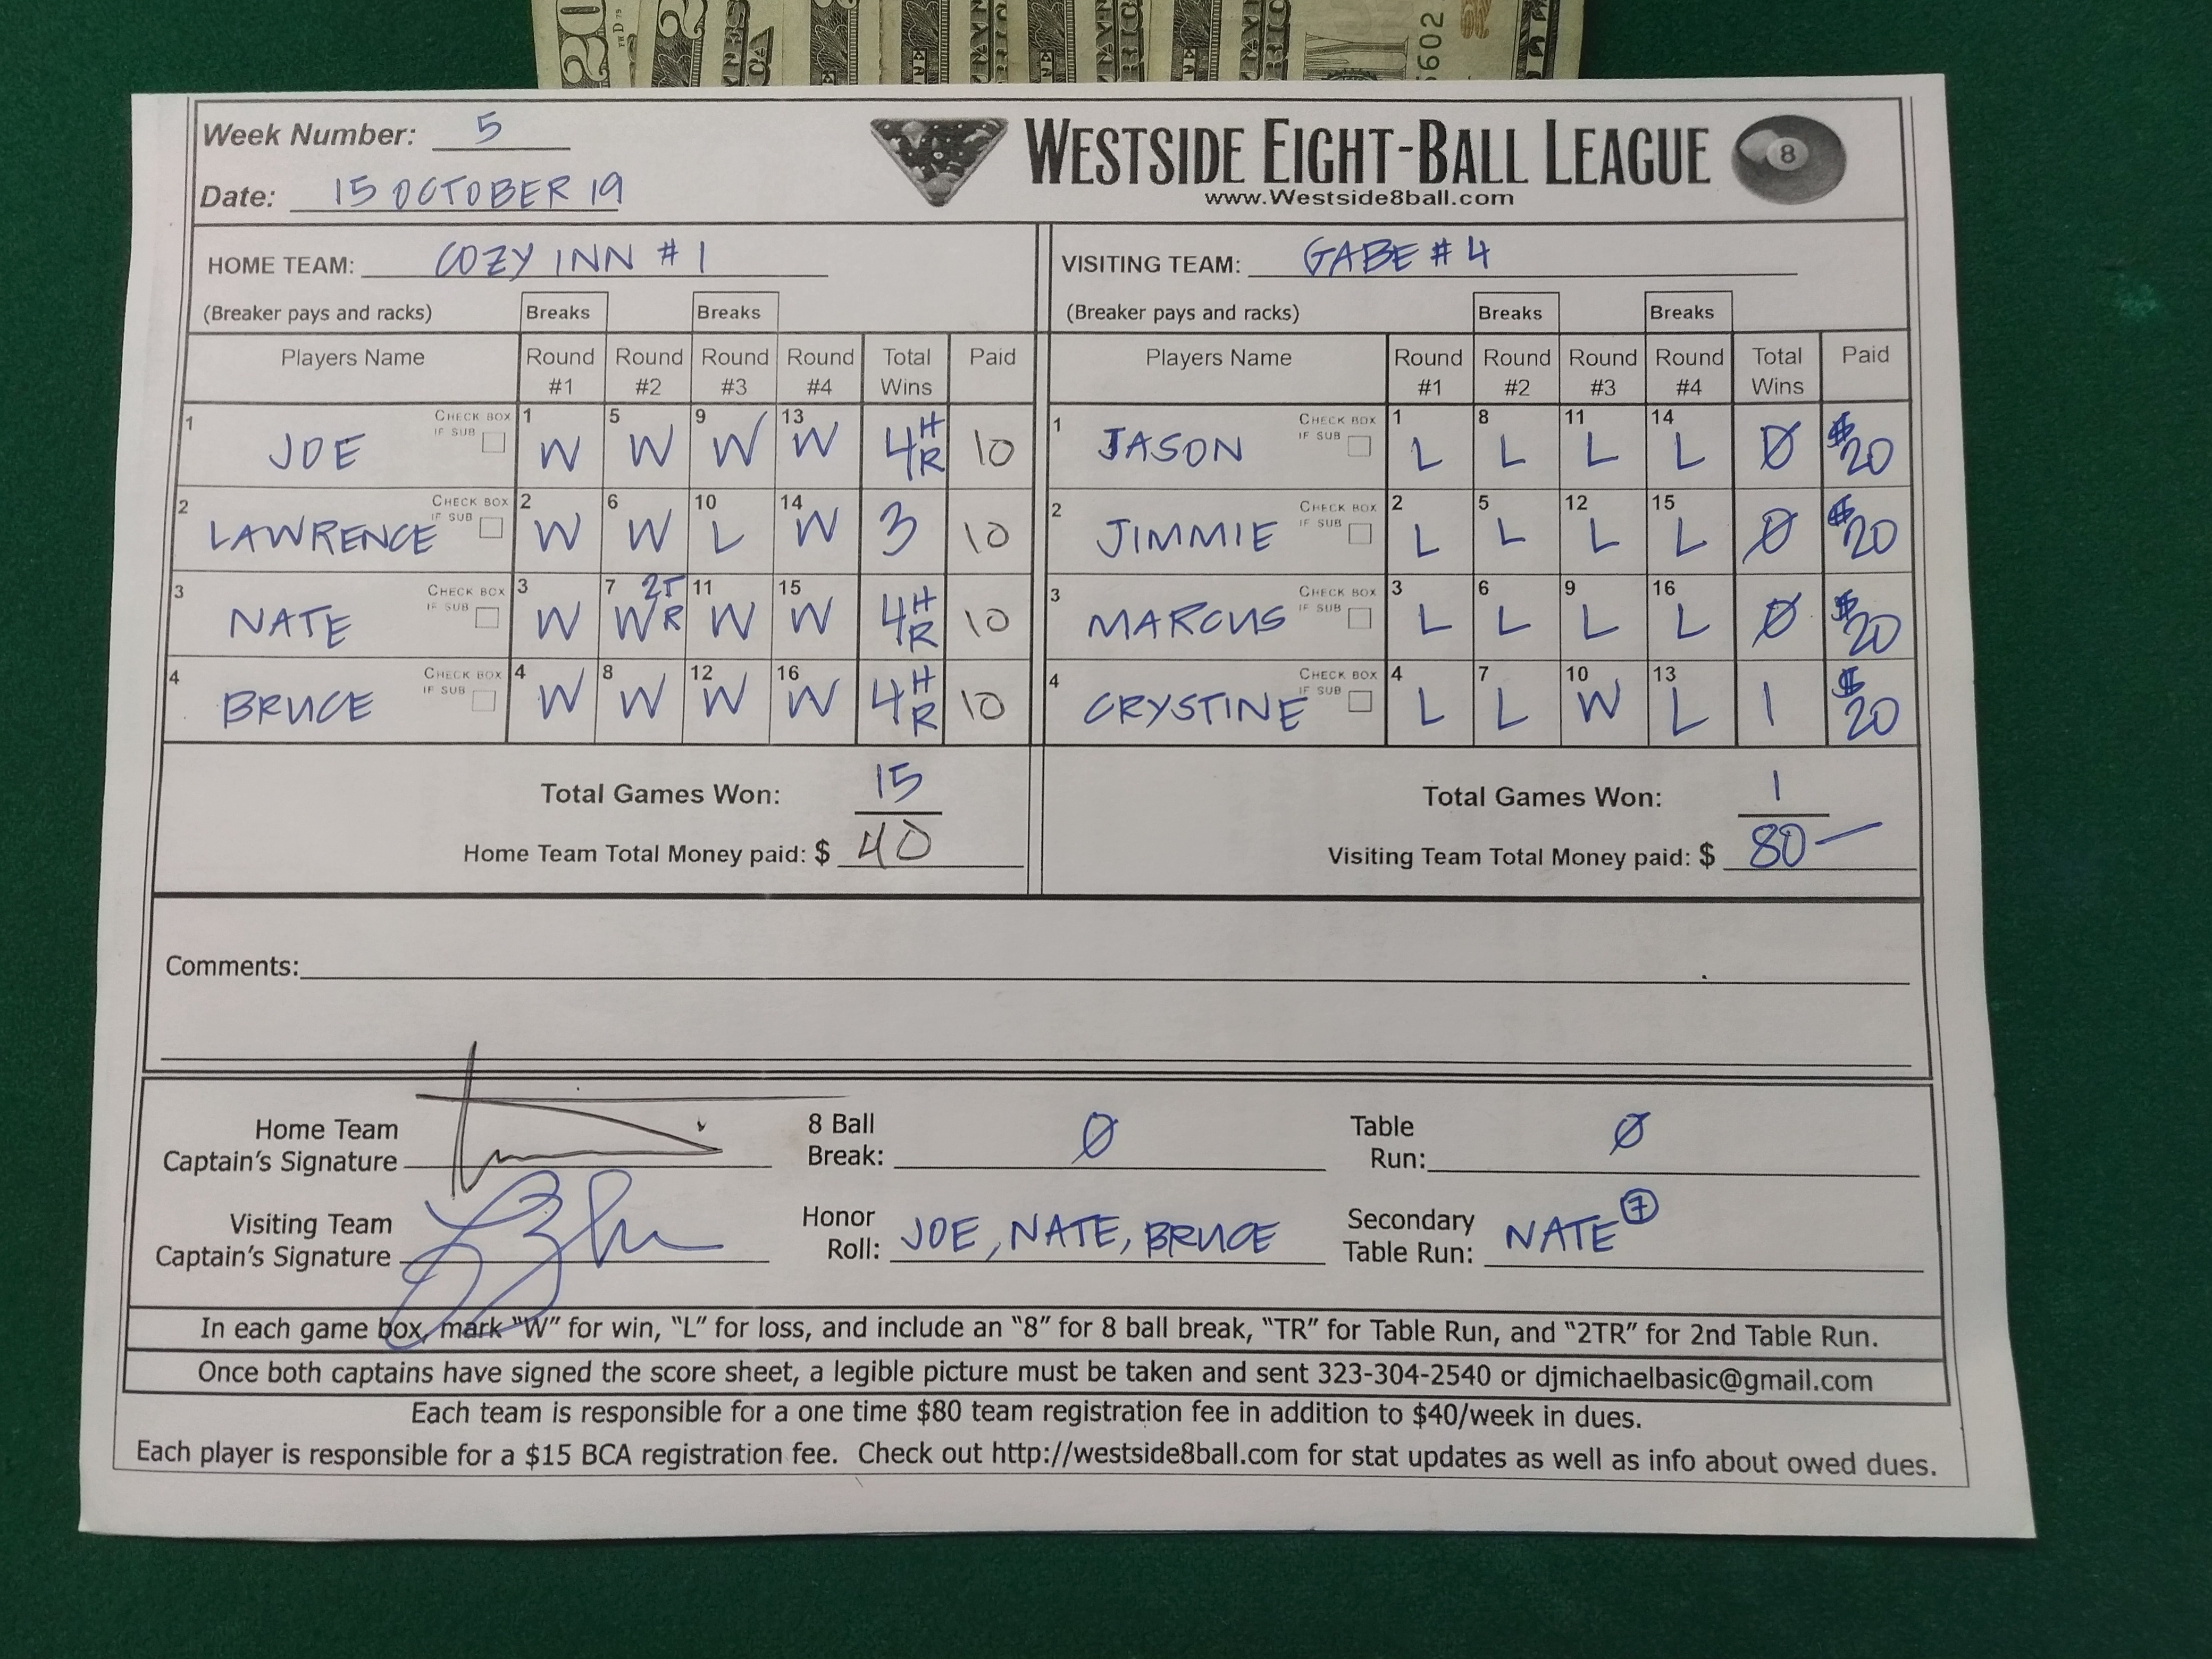 Week Number: 5
Date: 15 OCTOBER 19
WESTSIDE EIGHT-BALL LEAGUE
www.Westside8ball.com
8
HOME TEAM: COZY INN #1
VISITING TEAM: GABE #4
(Breaker pays and racks) Breaks Breaks
(Breaker pays and racks) Breaks Breaks
Players Name Round #1 Round #2 Round #3 Round #4 Total Wins Paid
Players Name Round #1 Round #2 Round #3 Round #4 Total Wins Paid
1 JOE CHECK BOX IF SUB 1 W 5 W 9 W 13 W 4 HR 10
1 JASON CHECK BOX IF SUB 1 L 8 L 11 L 14 L Ø $20
2 LAWRENCE CHECK BOX IF SUB 2 W 6 W 10 L 14 W 3 10
2 JIMMIE CHECK BOX IF SUB 2 L 5 L 12 L 15 L Ø $20
3 NATE CHECK BOX IF SUB 3 W 7 W 2TR 11 W 15 W 4 HR 10
3 MARCUS CHECK BOX IF SUB 3 L 6 L 9 L 16 L Ø $20
4 BRUCE CHECK BOX IF SUB 4 W 8 W 12 W 16 W 4 HR 10
4 CRYSTINE CHECK BOX IF SUB 4 L 7 L 10 W 13 L 1 $20
Total Games Won: 15
Total Games Won: 1
Home Team Total Money paid: $ 40
Visiting Team Total Money paid: $ 80—
Comments:
Home Team Captain's Signature
8 Ball Break: Ø
Table Run: Ø
Visiting Team Captain's Signature
Honor Roll: JOE, NATE, BRUCE
Secondary Table Run: NATE 7
In each game box, mark "W" for win, "L" for loss, and include an "8" for 8 ball break, "TR" for Table Run, and "2TR" for 2nd Table Run.
Once both captains have signed the score sheet, a legible picture must be taken and sent 323-304-2540 or djmichaelbasic@gmail.com
Each team is responsible for a one time $80 team registration fee in addition to $40/week in dues.
Each player is responsible for a $15 BCA registration fee. Check out http://westside8ball.com for stat updates as well as info about owed dues.